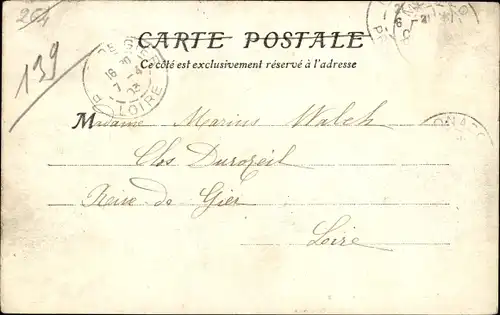 264
139
CARTE POSTALE
Ce côté est exclusivement réservé à l'adresse
18 30
7 - 4
03
LOIRE
Madame Marius Walch
Chs Durozeil
Rive de Gier
Loire